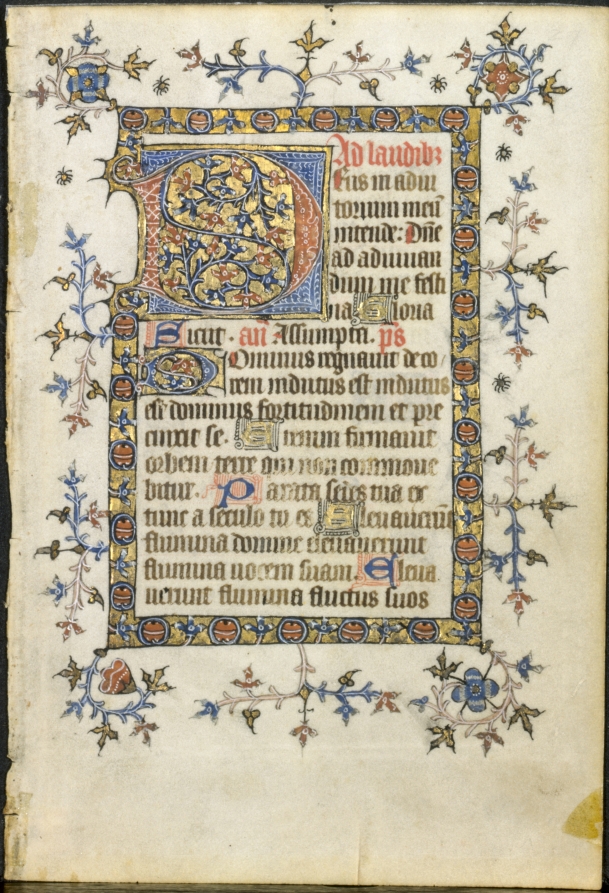 Ad laudibꝫ
Deus in adiu
torium meū
intende: Dn̄e
ad adiuuan
dum me festi
na Gloria
Sicut. an̄ Assumpta. ps̄
Dominus regnauit deco
rem indutus est indutus
est dominus fortitudinem et pre
cinxit se. Etenim firmauit
orbem terre qui non commoue
bitur. Parata sedes tua ex
tunc a seculo tu es Eleuauerūt
flumina domine eleuauerunt
flumina uocem suam. Eleua
uerunt flumina fluctus suos